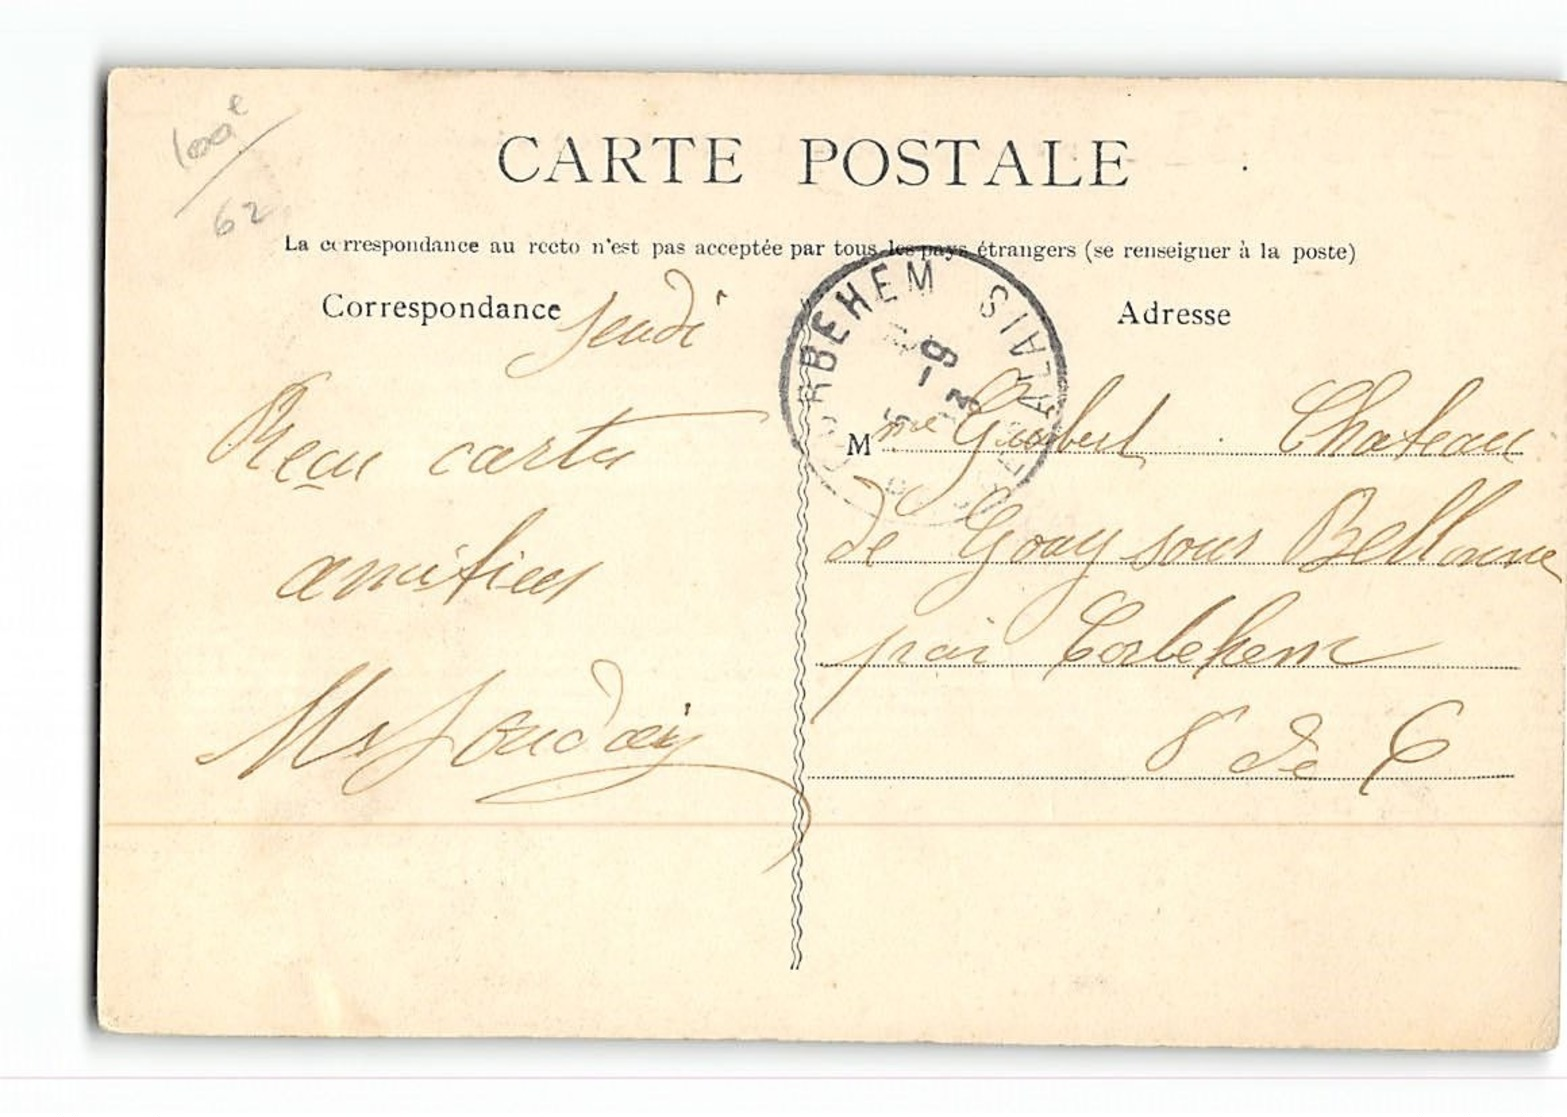 100e
62
CARTE POSTALE
La correspondance au recto n'est pas acceptée par tous les pays étrangers (se renseigner à la poste)
Correspondance
Adresse
Jeudi
Reçu carte
amitiés
CORBEHEM
PAS-DE-CALAIS
Mme Guilbert Chateau
de Gouy sous Bellonne
par Corbehem
P de C